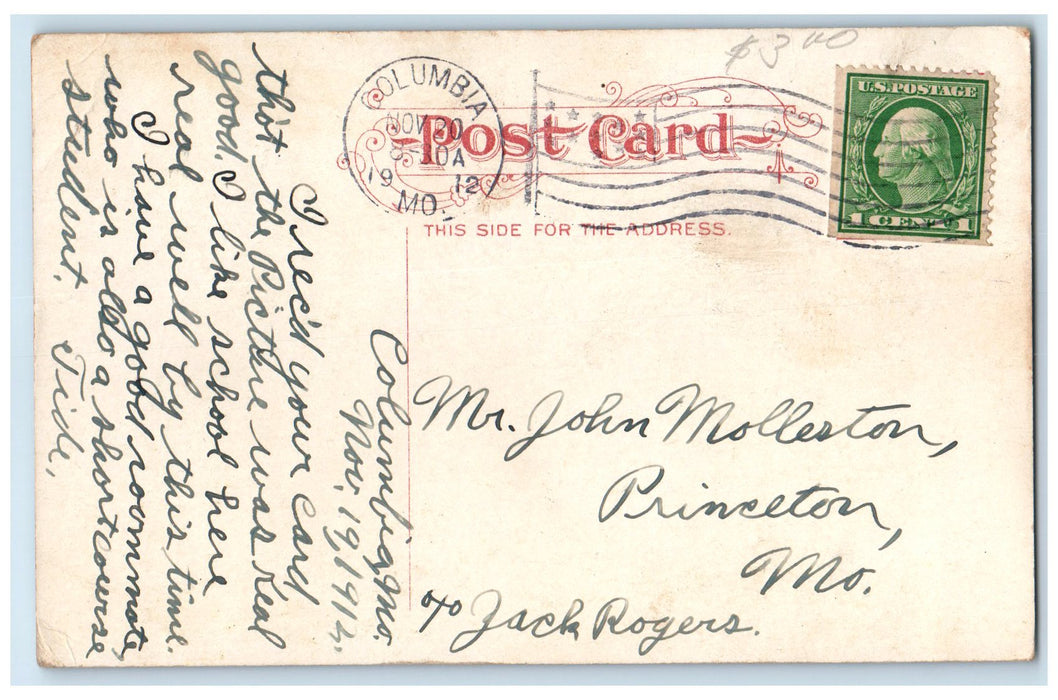 $3.00
COLUMBIA
NOV 20
10 A
1912
MO.
Post Card
U.S. POSTAGE
1 CENT 1
THIS SIDE FOR THE ADDRESS.
Columbia, Mo.
Nov. 19 1912,
I rec'd your card
thot the Picture was real
good. I like school here
real well by this time.
I have a good roommate,
who is also a shortcourse
student. Tide,
Mr. John Mollerton,
Princeton,
Mo.
c/o Jack Rogers.